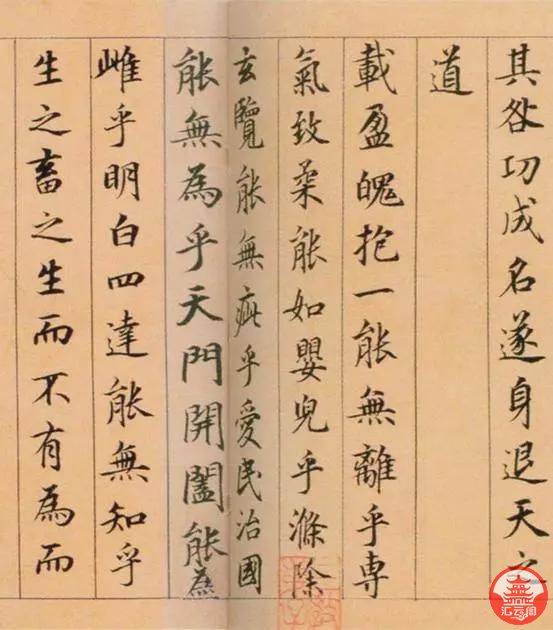 其咎功成名遂身退天之
道
載盈魄抱一能無離乎専
氣致柔能如嬰兒乎滌除
玄覽能無疵乎愛民治國
能無為乎天門開闔能無
雌乎明白四達能無知乎
生之畜之生而不有為而
汇云阁